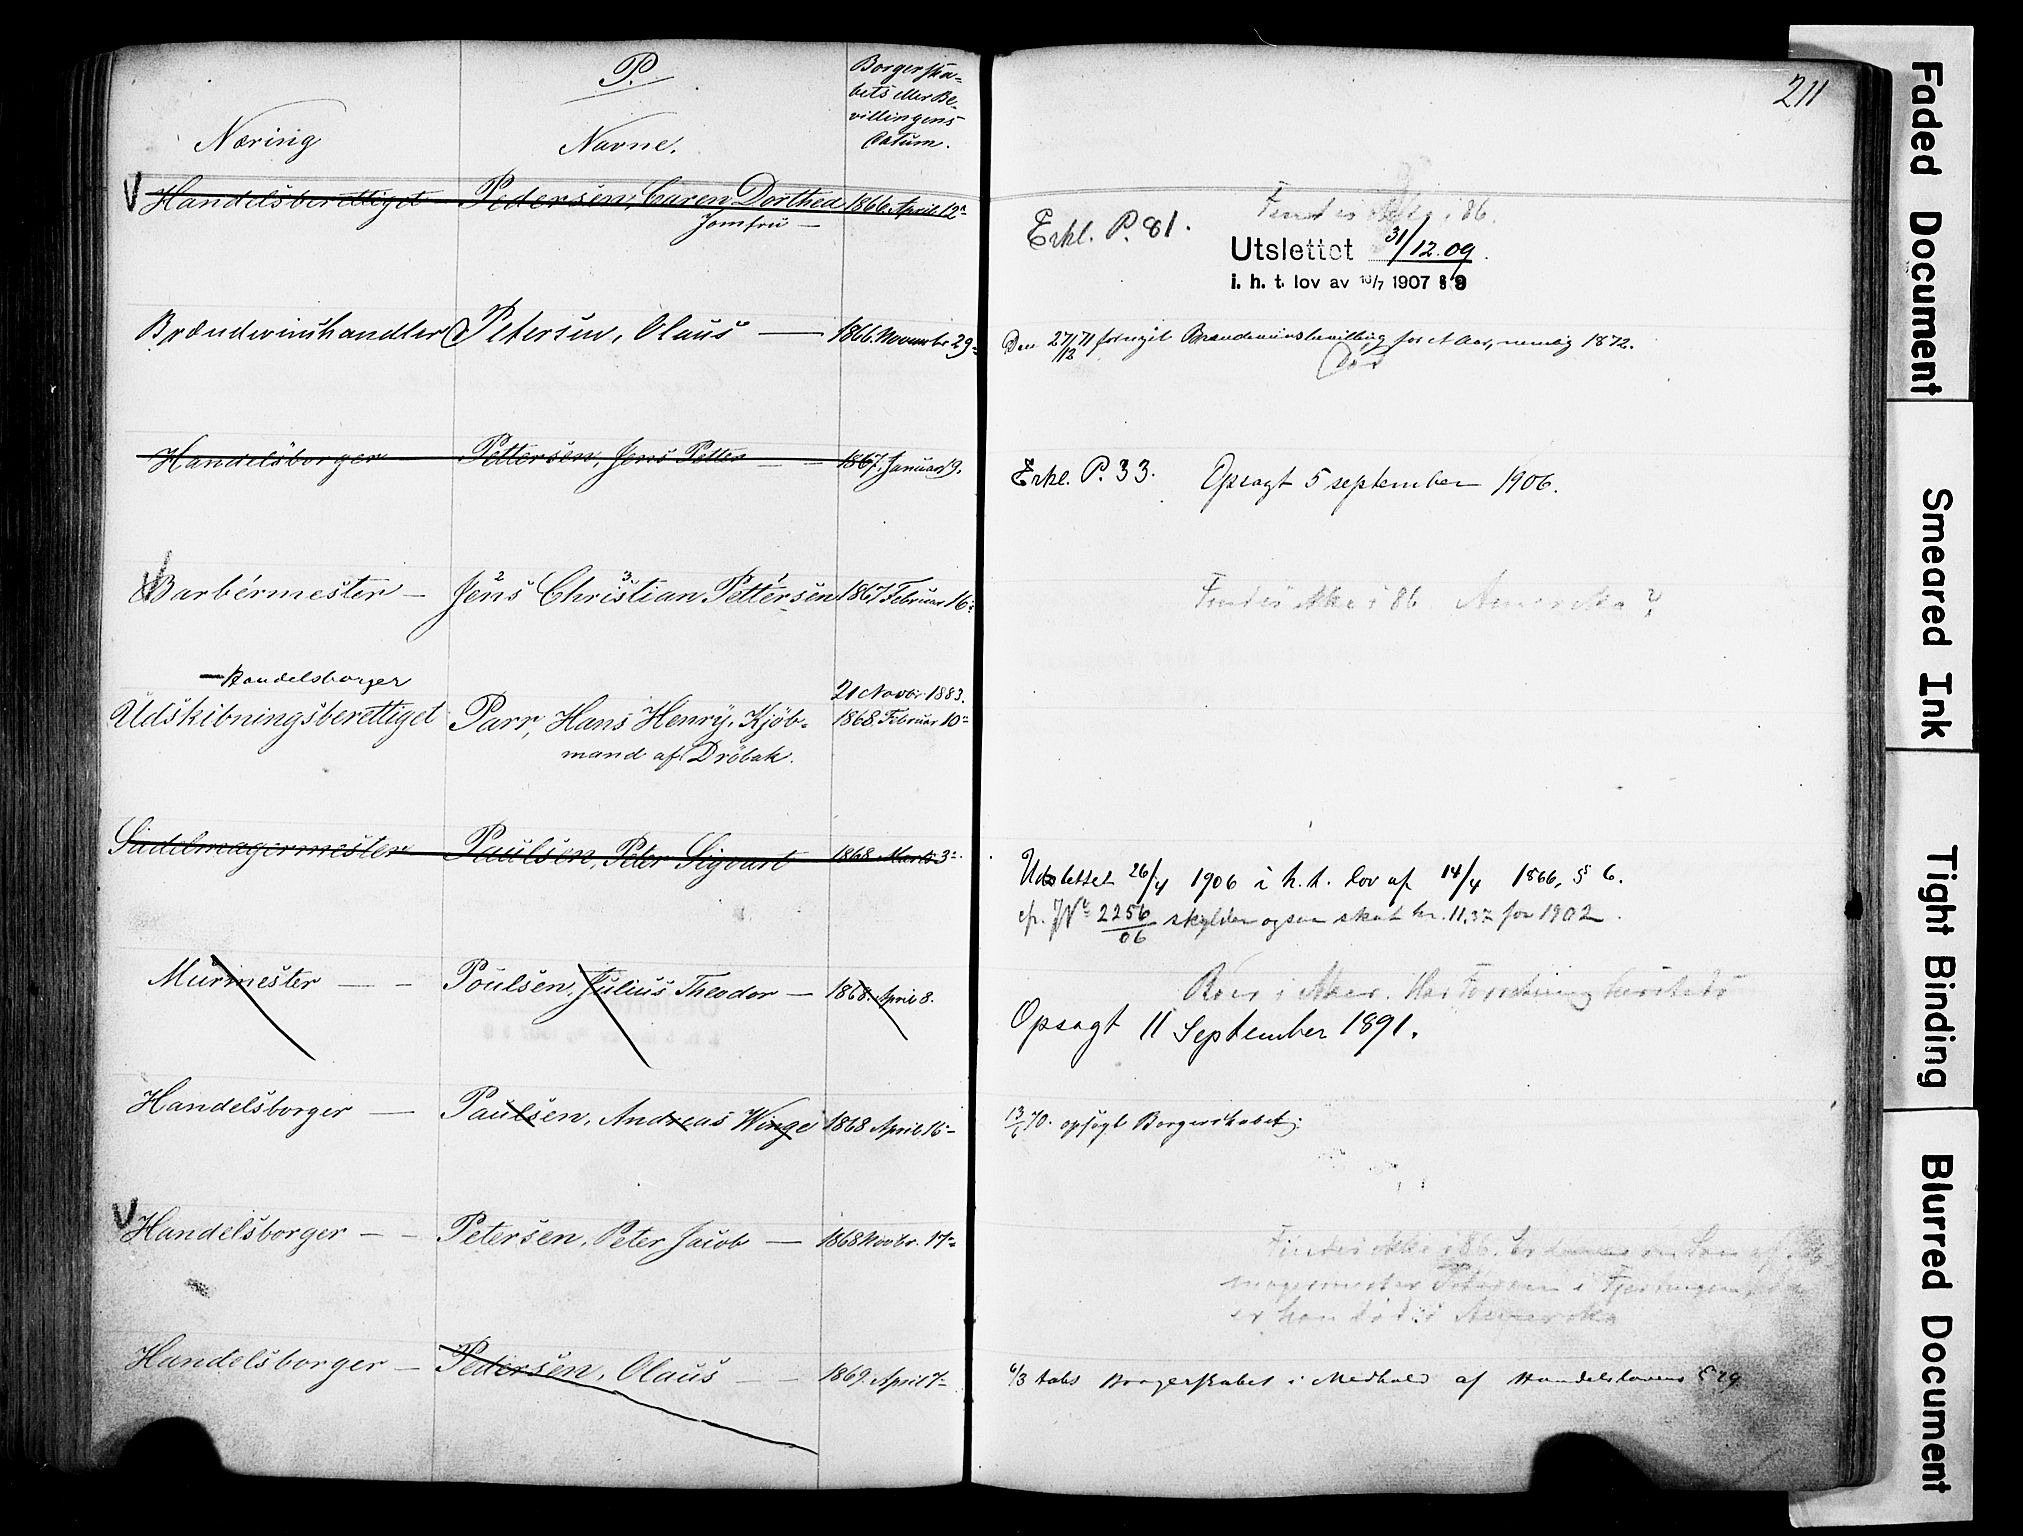 P.
Næring
Navne.
Borgerska-
bets eller Be-
villingens
Datum.
211
Handelsberettiget Pedersen, Caren Dorthea 1866 April 12
Jomfru —
Findes ikke i 86.
Erkl. P. 81.
Utslettet 31/12.09.
i. h. t. lov av 16/7 1907 § 9
Brændevinshandler Petersen, Olaus — 1866 Novembr 29
Den 27/12 71 fornyet Brændevinsbevilling for et Aar, nemlig 1872.
Død
Handelsborger Pettersen, Jens Petter — 1867. Januar 9.
Erkl. P. 33. Opsagt 5 september 1906.
Barbérmester — Jens Christian Pettersen 1867 Februar 16
2 3 1
Findes ikke i 86. Amerika?
— Handelsborger 21 Novbr 1883.
Udskibningsberettiget Parr, Hans Henry, Kjøb- 1868. Februar 10
mand af Drøbak.
Sadelmagermester Paulsen, Peter Sigvart 1868 Marts 3
Udslettet 26/4 1906 i h. t. lov af 14/4 1866, § 6.
cfr. JN 2256/06 skylder ogsaa skat kr. 11.37 for 1902.
Murmester — Poulsen, Julius Theodor — 1868. April 8.
Boer i Aker. Har Forretning
Opsagt 11 September 1891.
Handelsborger — Paulsen, Andreas Winge 1868 April 16
13/6 70. opsagt Borgerskabet.
Handelsborger — Petersen, Peter Jacob — 1868 Novbr. 17
Findes ikke i 86. Er en Søn af
magermester Petersen i
er han død i Amerika
Handelsborger — Pedersen, Olaus — 1869. April 7
6/3 tabt Borgerskabet i Medhold af Handelslovens § 29
Faded Document
Smeared Ink
Tight Binding
Blurred Document